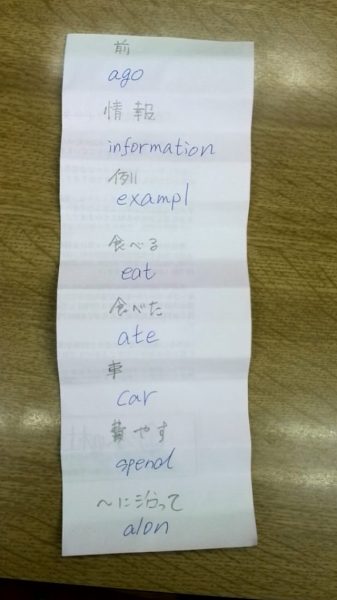 前
ago
情報
information
例
exampl
食べる
eat
食べた
ate
車
car
費やす
spend
〜に沿って
alon